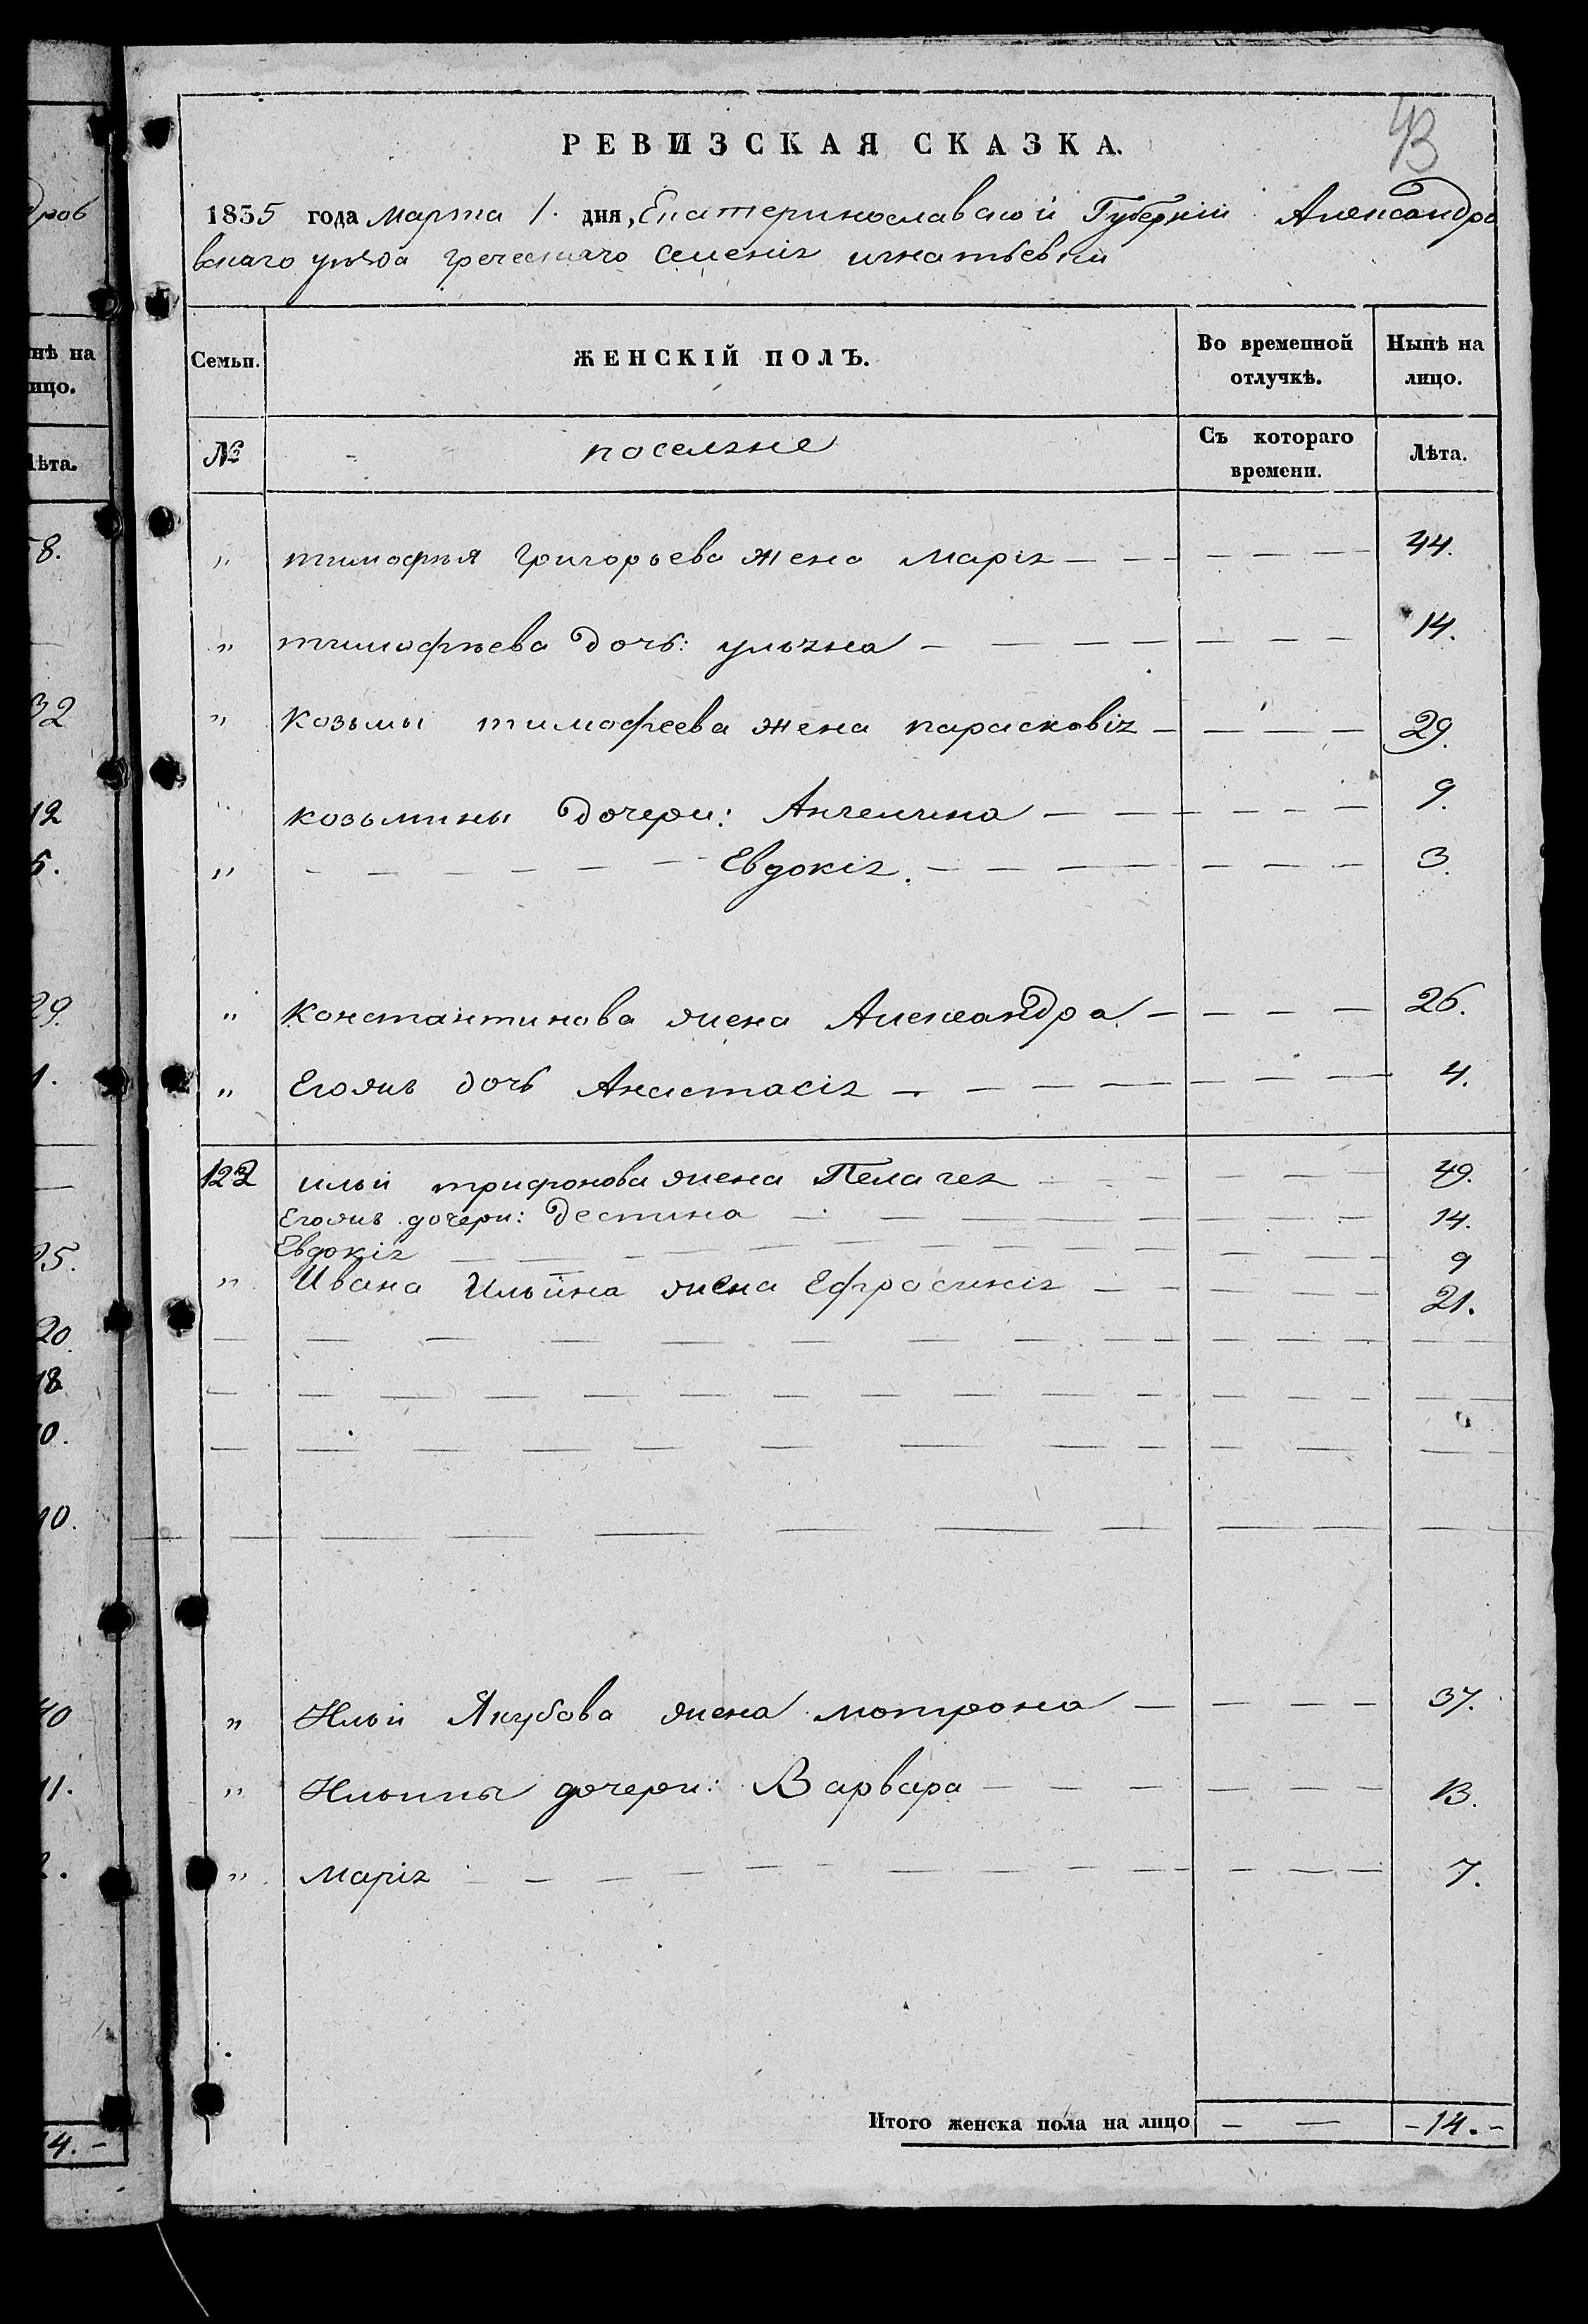 дров
нѣ на
ицо.
Лѣта.
8.
32
12
5.
29.
1.
25.
20.
18
0.
10.
40
11.
2.
14.-
43
РЕВИЗСКАЯ СКАЗКА.
1835 года марта 1. дня, Екатеринославской Губерніи Александро
вскаго уѣзда греческаго селенія игнатьевки
Семьи. ЖЕНСКІЙ ПОЛЪ. Во временной отлучкѣ. Нынѣ на лицо.
№ поселяне Съ котораго времени. Лѣта.
" тимофѣя григорьева жена марія — — — — — — 44.
" тимофѣева дочь: ульяна — — — — — — — 14.
" козьмы тимофеева жена парасковія — — — — — 29.
" козьмины дочери: Ангелина — — — — — — 9.
" — — — — — — Евдокія. — — — — — — — 3.
" константинова жена Александра — — — — 26.
" Егожъ дочь Анастасія — — — — — — — 4.
122 ильи трифонова жена Пелагея — — — — — 49.
Егожъ дочери: Деспина — — — — — — — 14.
Евдокія — — — — — — — — — — — 9
" Ивана Ильина жена Ефросинія — — — — — 21.
" Ильи Якубова жена мотрона — — — — — 37.
" Ильины дочери: Варвара — — — — — — — 13.
" марія — — — — — — — — — — — 7.
Итого женска пола на лицо — — -14.-